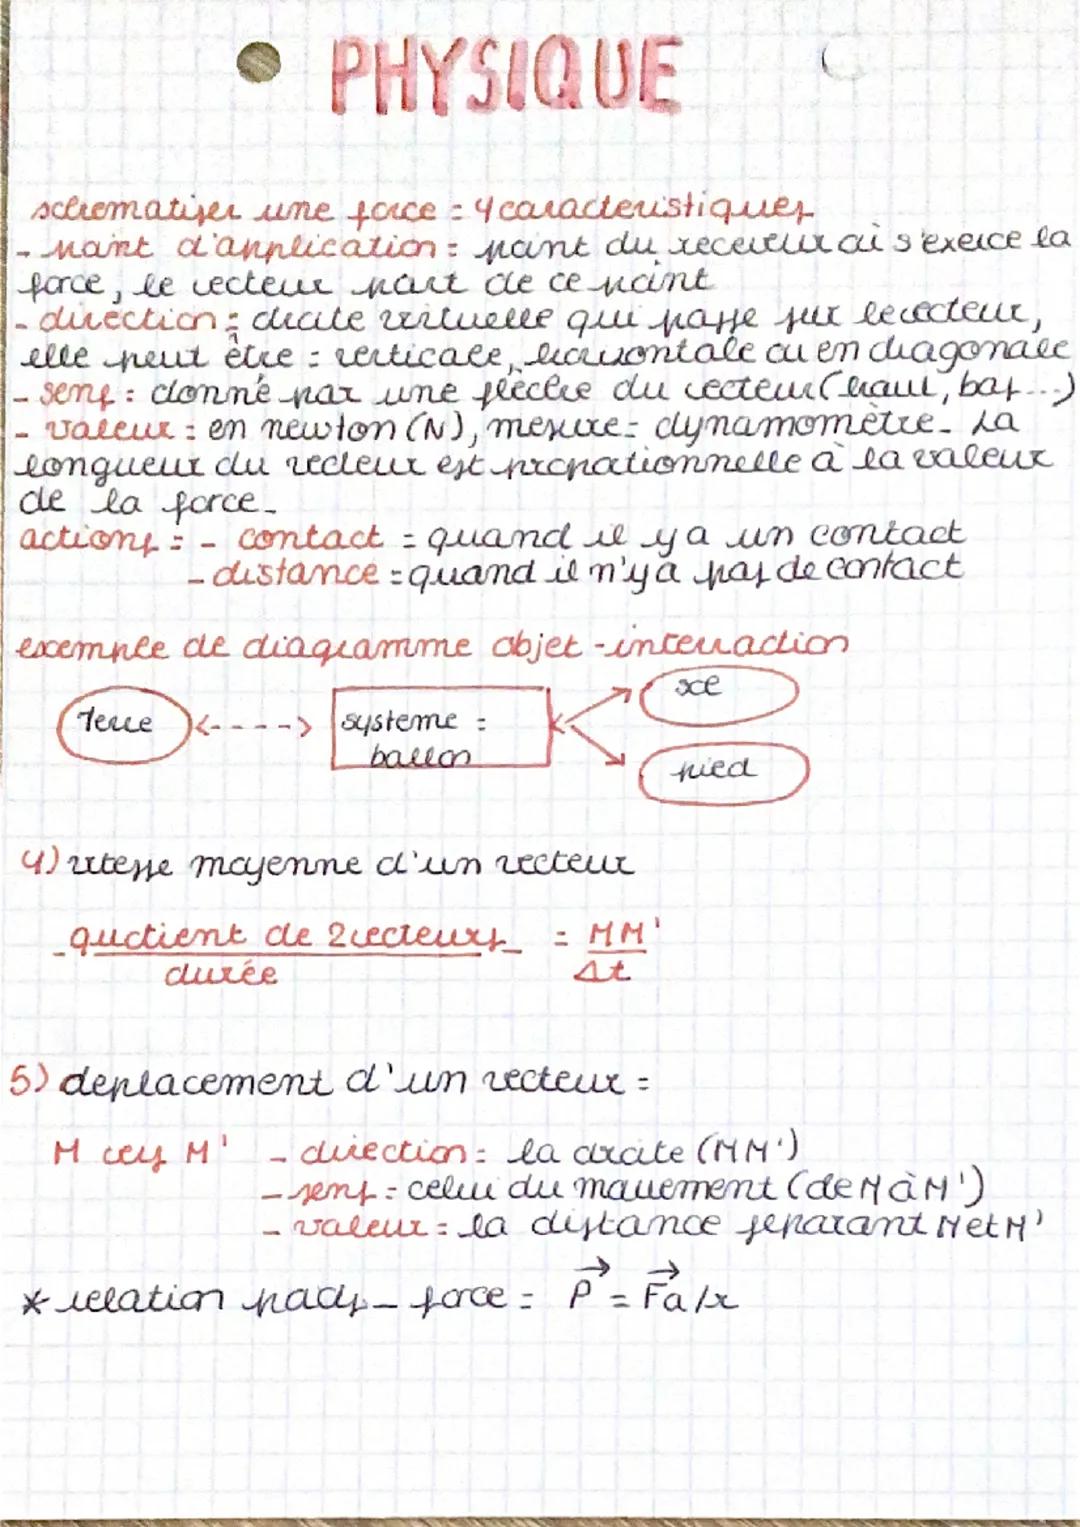 PHYSIQUE
schematiser une force : 4 caracteristiques
- point d'application : point du receveur où s'exerce la
force, le vecteur part de ce point
- direction : droite virtuelle qui passe sur le vecteur,
elle peut être : verticale, horizontale ou en diagonale
- sens : donné par une flèche du vecteur (haut, bas...)
- valeur : en newton (N), mesure : dynamomètre. La
longueur du vecteur est proportionnelle à la valeur
de la force.
actions : - contact : quand il y a un contact
- distance : quand il n'y a pas de contact
exemple de diagramme objet - interraction
Terre
systeme :
ballon
sol
pied
4) vitesse moyenne d'un vecteur
quotient de 2 vecteurs = MM'
durée Δt
5) deplacement d'un vecteur :
M vers M' - direction : la droite (MM')
- sens : celui du mouvement (de M à M')
- valeur : la distance separant M et M'
* relation poids - force : P = Fa/x